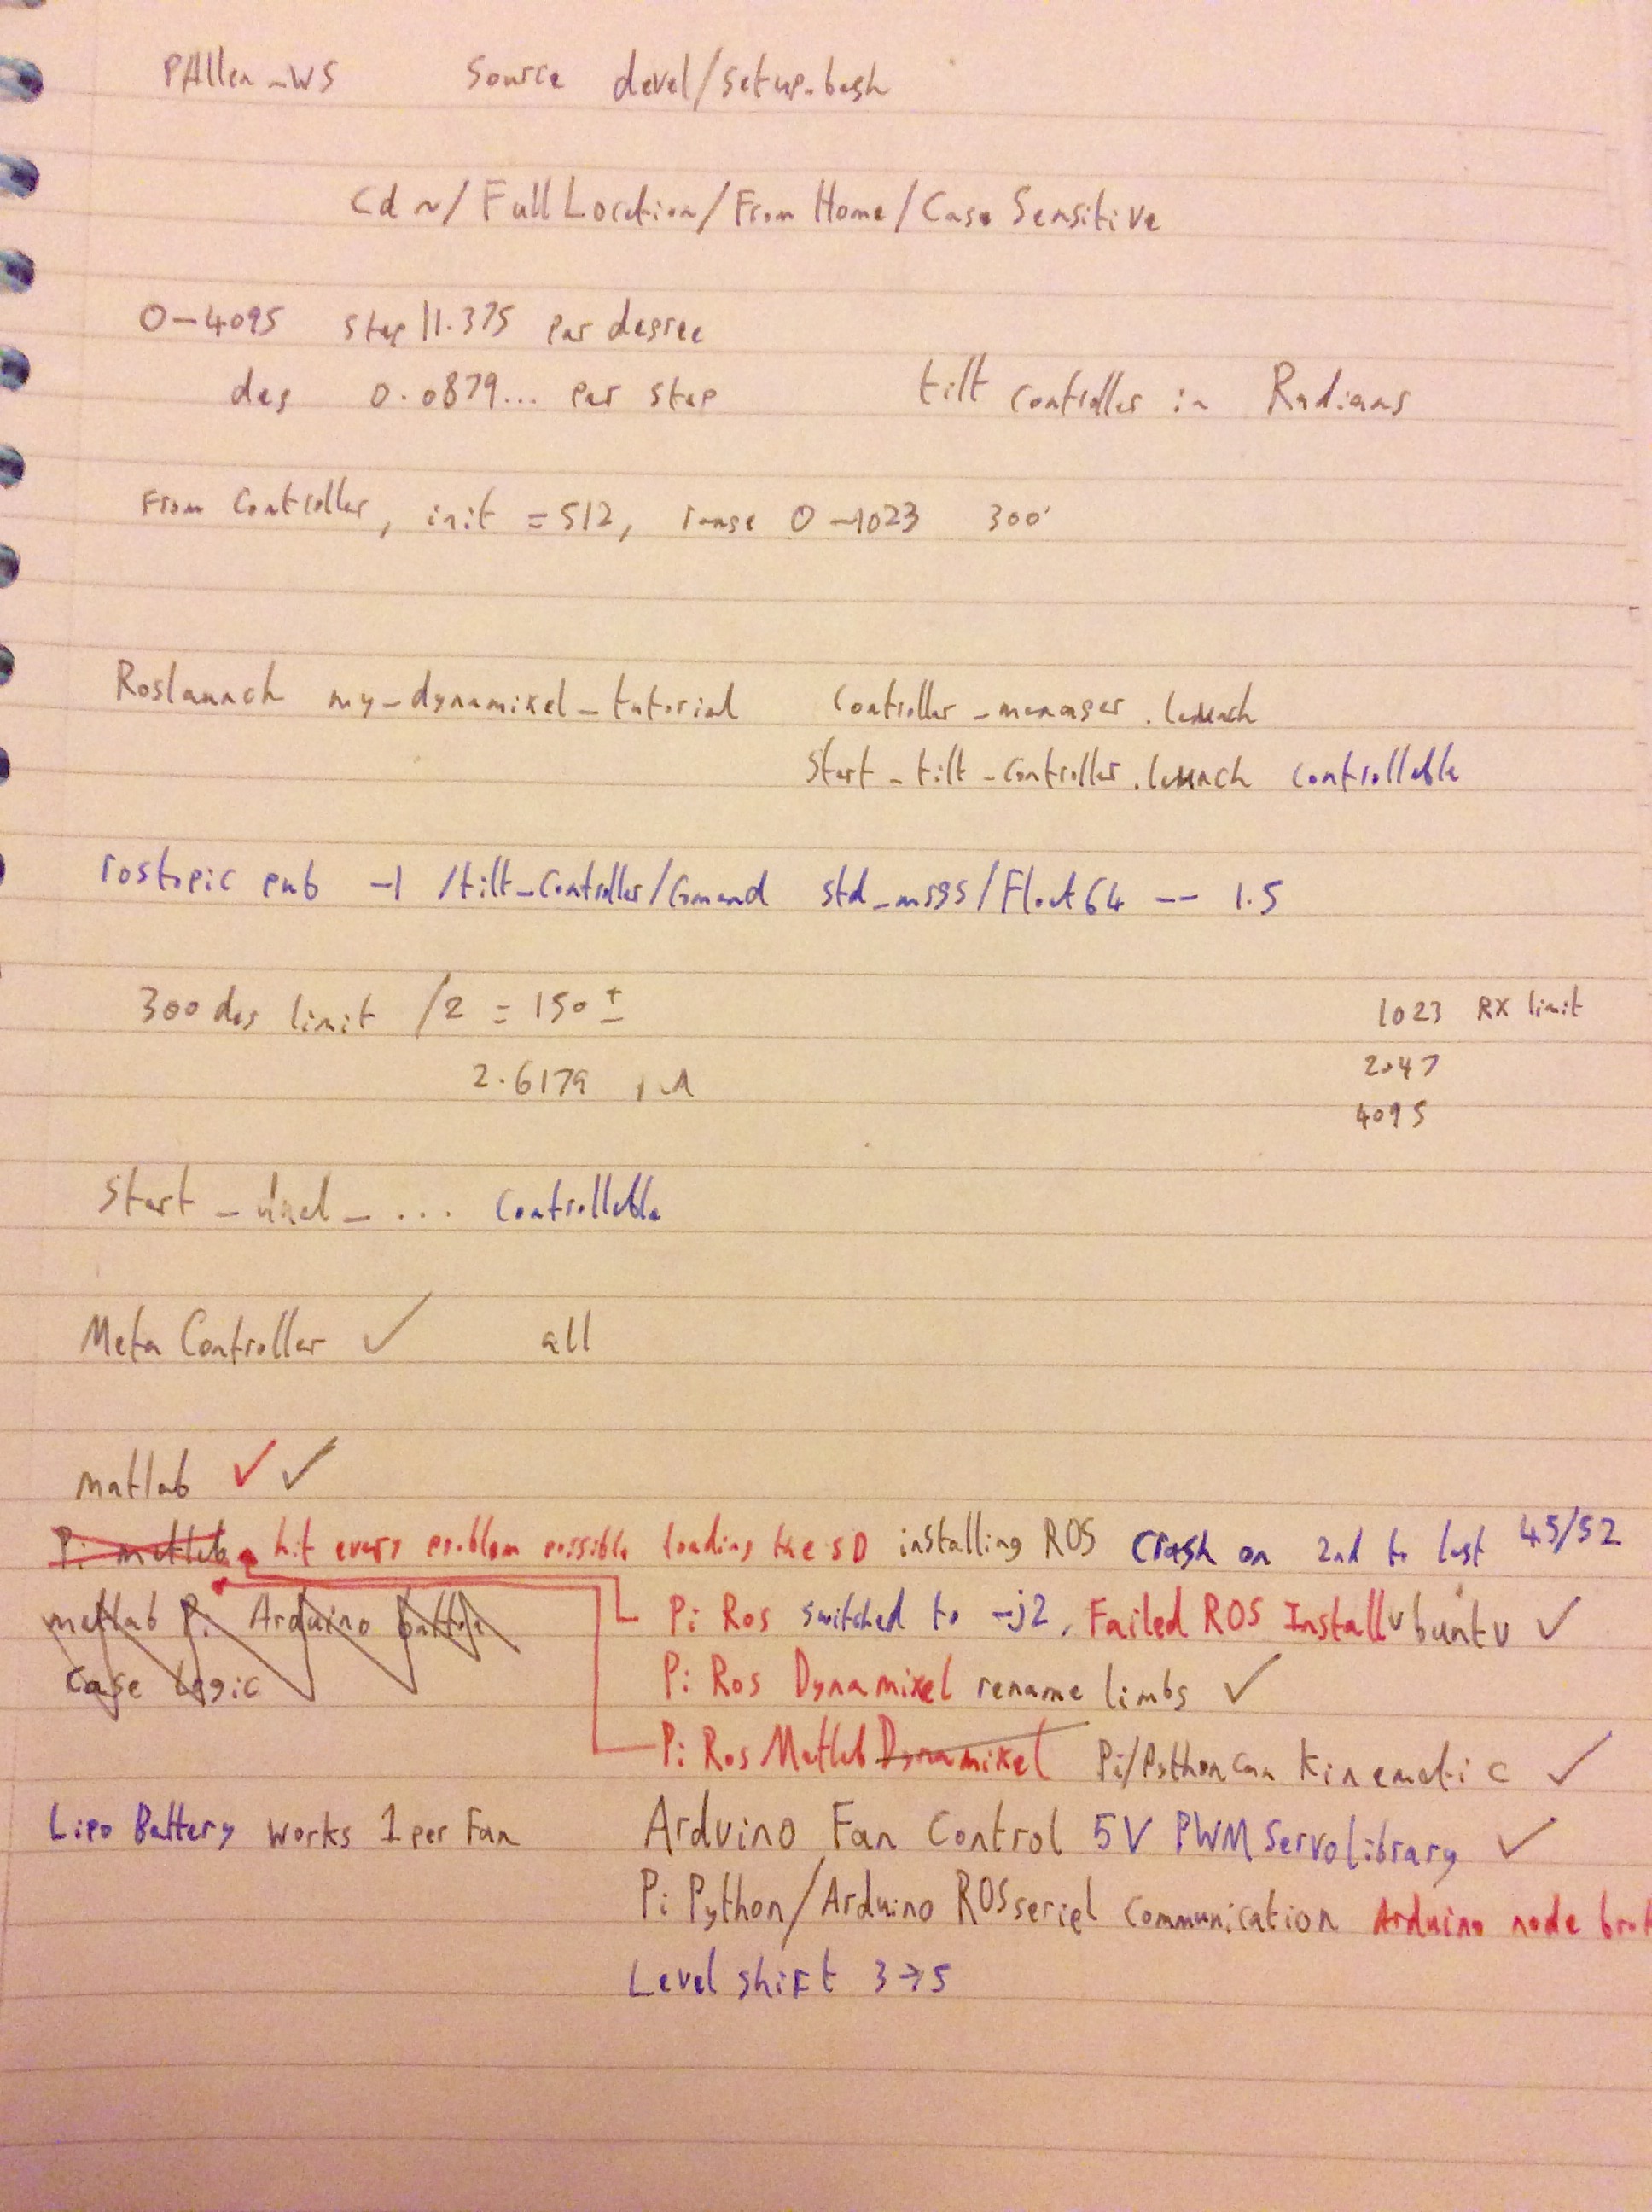 PAllen_WS Source devel/setup.bash
Cd ~/FullLocation/From Home/Case Sensitive
0-4095 step 11.375 per degree
deg 0.0879... per step tilt controller in Radians
From Controller, init = 512, range 0-1023 300°
Roslaunch my_dynamixel_tutorial Controller_manager.launch
Start_tilt_controller.launch controllable
rostopic pub -1 /tilt_Controller/Command std_msgs/Float64 -- 1.5
300 deg limit /2 = 150 ± 1023 RX limit
2.6179 2047
4095
Start_ _... Controllable
Meta Controller ✓ all
Matlab ✓ ✓
Pi matlab hit every problem possible loading the SD installing ROS Crash on 2nd to last 45/52
matlab Pi Arduino Pi Ros switched to -j2, Failed ROS Install Ubuntu ✓
Case Logic Pi Ros Dynamixel rename limbs ✓
Pi Ros Matlab Dynamixel Pi/Python Kinematic ✓
Lipo Battery works 1 per Fan Arduino Fan Control 5V PWM Servo library ✓
Pi Python/Arduino ROSserial Communication Arduino node
Level shift 3→5